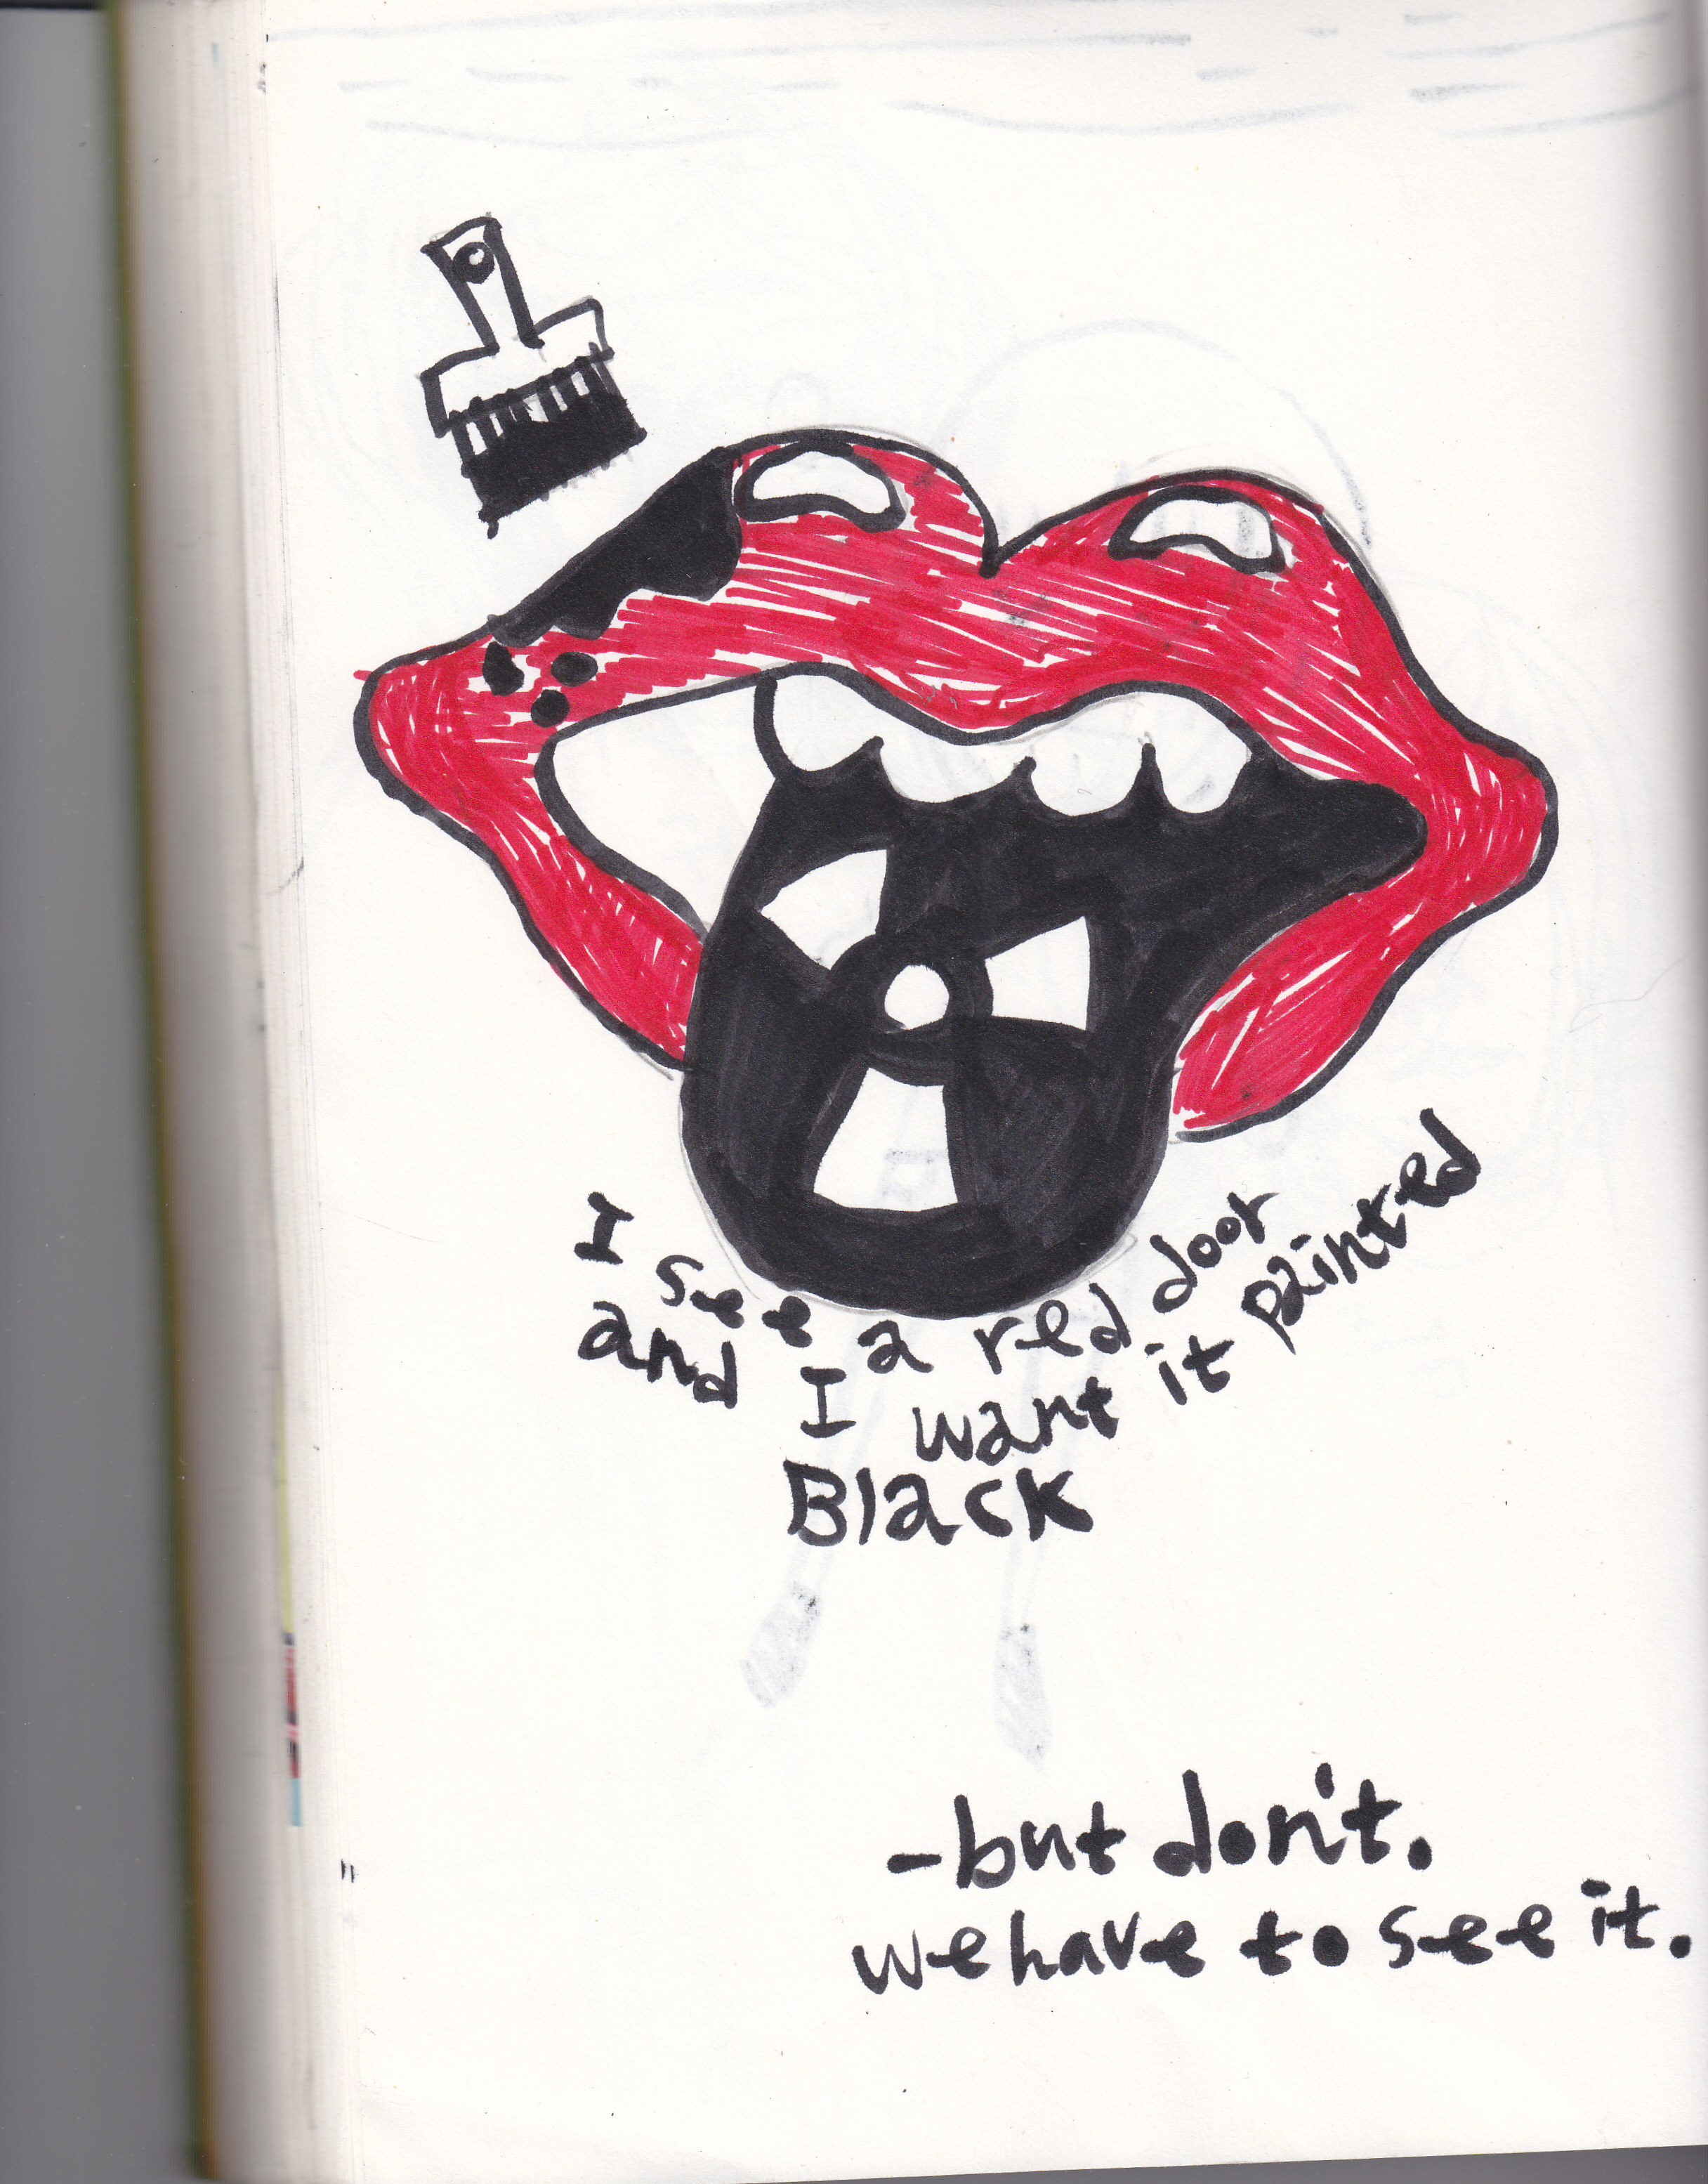 I see a red door
and I want it painted
Black
-but don't.
we have to see it.